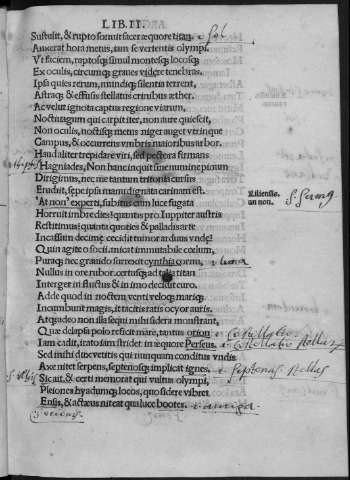 LIB. II.
Sustulit, & rupto sonuit sacer æquore titan. i. Sol
Auxerat hora metus, iam se vertentis olympi
Vt faciem, raptosq; simul montesq; locosq;
Ex oculis, circumq; graues videre tenebras,
Ipsa quies rerum, mundiq; silentia terrent,
Astraq; & effusis stellatus crinibus æther.
Ac velut ignota captus regione viarum,
Noctiuagum qui carpit iter, non aure quiescit,
Non oculis, noctisq; metus niger auget vtrinque
Campus, & occurrens vmbris maioribus arbor.
Haud aliter trepidare viri, sed pectora firmans
Hagniades, Non hanc inquit sine numine pinum
Dirigimus, nec me tantum tritonia cursus
Erudiit, sepe ipsa manu dignata carinam est.
An non experti, subitus cum luce fugata
Filiensse.
an non.
Horruit imbre dies? quantis pro Iuppiter austris
Restitimus? quanta quoties & palladis arte
Incassum decimæ cecidit tumor arduus vndæ?
Quin agite o socii, micat immutabile coelum,
Puraq; nec grauido surrexit cynthia cornu, i luna
Nullus in ore rubor. certusq; ad talia titan
Integer in fluctus & in imo decidit euro.
Adde quod in noctem venti veloq; mariq;
Incumbunt magis, it tacitis ratis ocyor auris.
Atq; adeo non illa sequi mihi sidera monstrant,
Quæ delapsa polo reficit mare, tantus orion
Iam cadit, irato iam stridet in æquore Perseus.
Sed mihi dux vetitis qui nunquam conditus vndis
Axe nitet serpens, septenosq; implicit ignes.
Sic ait, & certi memorat qui vultus olympi,
Pleiones hyadumq; locos, quo sidere vibret
Ensis, & actæus niteat qua luce bootes.